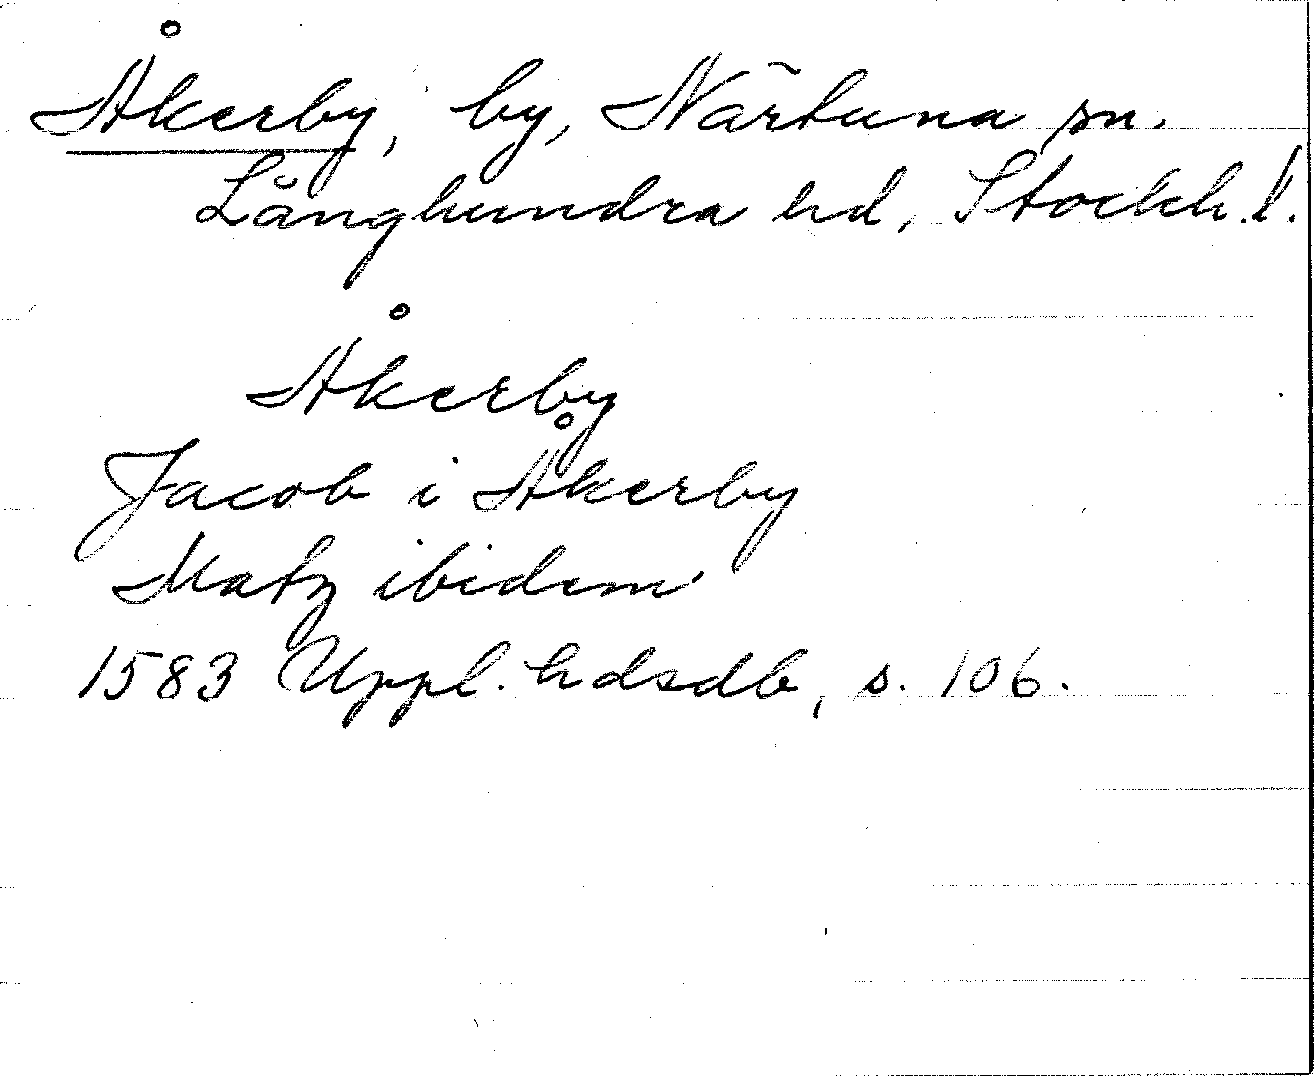 Åkerby, by, Närtuna sn.
Långhundra hd, Stockh. l.
Åkerby
Jacob i Åkerby
Matz ibidem
1583 Uppl. hdsdb, s. 106.